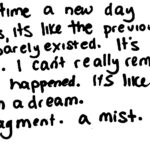 time a new day
s, it's like the previou
barely existed. It's
. I can't really rem
happened. It's like
n a dream.
agment. a mist.